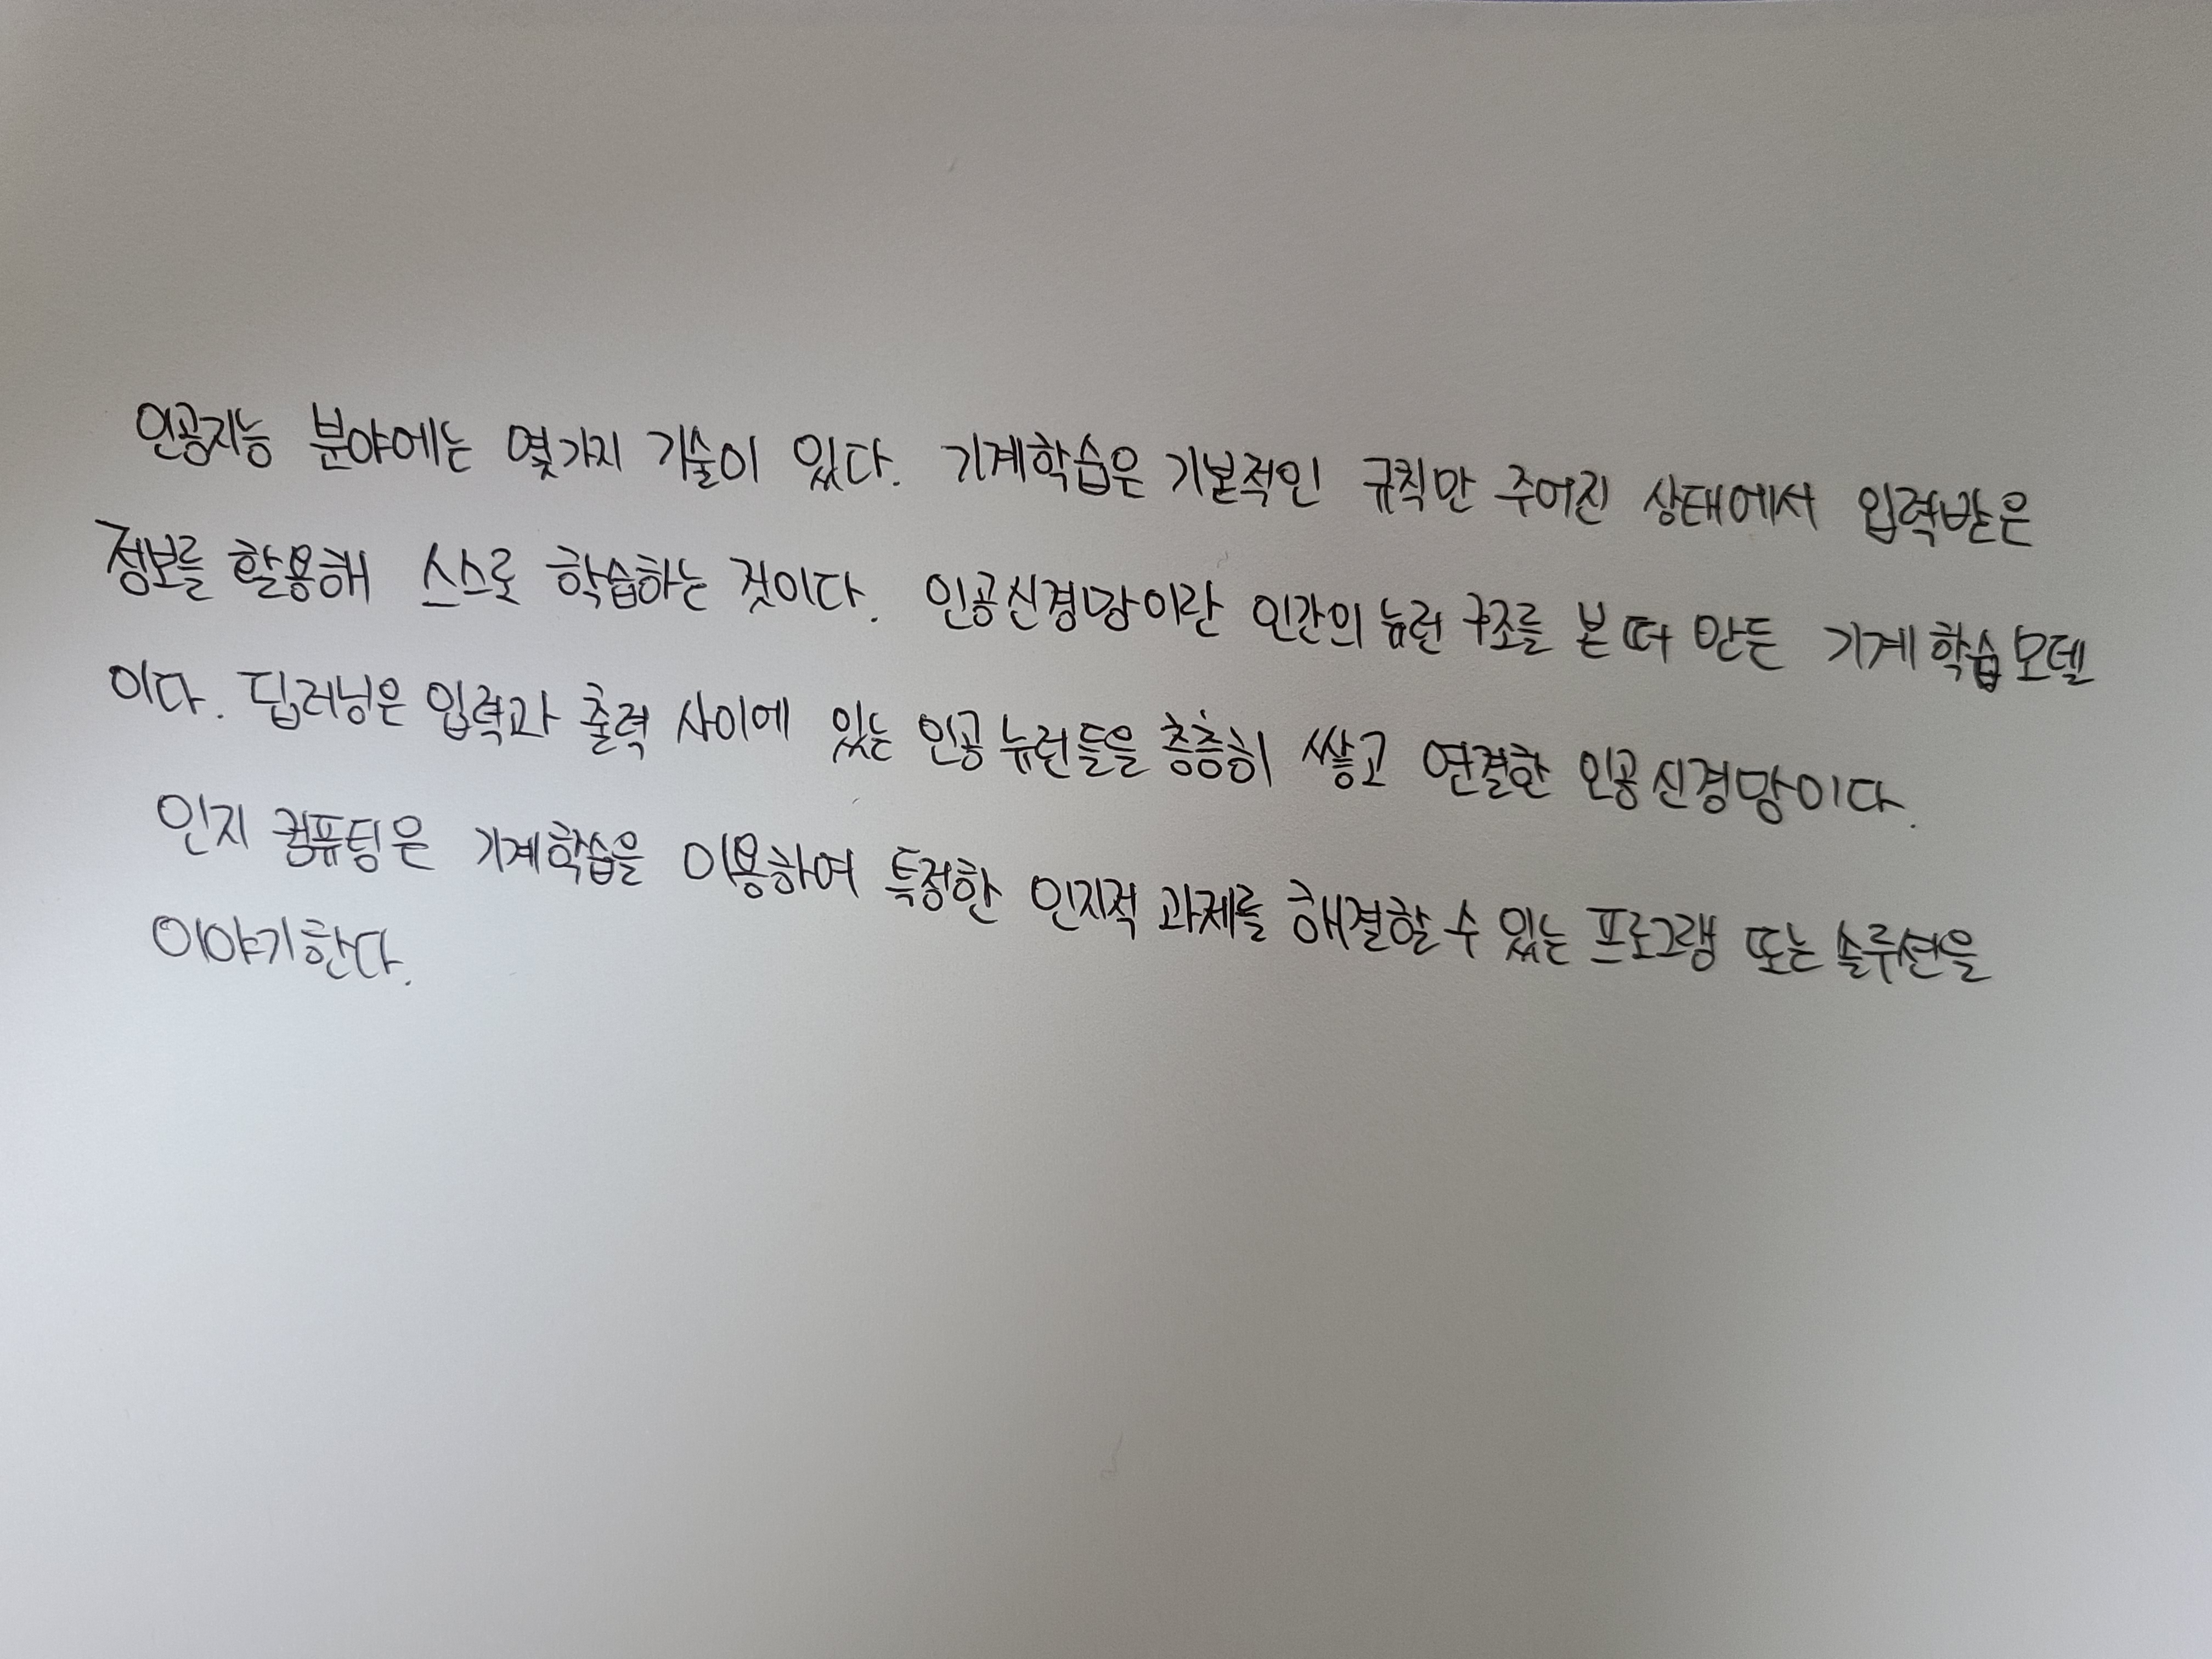 인공지능 분야에는 몇가지 기술이 있다. 기계학습은 기본적인 규칙만 주어진 상태에서 입력받은
정보를 활용해 스스로 학습하는 것이다. 인공신경망이란 인간의 뉴런 구조를 본 떠 만든 기계학습모델
이다. 딥러닝은 입력과 출력 사이에 있는 인공뉴런들을 층층히 쌓고 연결한 인공신경망이다.
인지 컴퓨팅은 기계학습을 이용하여 특정한 인지적 과제를 해결할 수 있는 프로그램 또는 솔루션을
이야기한다.